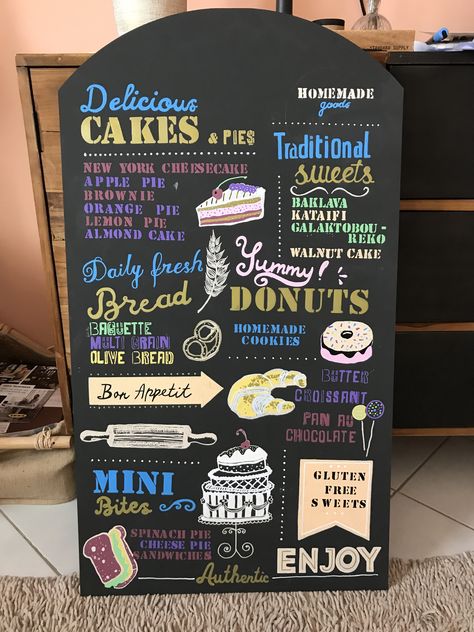 HOMEMADE
goods
Delicious
CAKES & PIES
NEW YORK CHEESECAKE
APPLE PIE
BROWNIE
ORANGE PIE
LEMON PIE
ALMOND CAKE
Traditional
sweets
BAKLAVA
KATAIFI
GALAKTOBOU-
REKO
WALNUT CAKE
Daily fresh
Bread
BAGUETTE
MULTI GRAIN
OLIVE BREAD
Yummy!
DONUTS
HOMEMADE
COOKIES
Bon Appetit
BUTTER
CROISSANT
PAN AU
CHOCOLATE
MINI
Bites
SPINACH PIE
CHEESE PIE
SANDWICHES
GLUTEN
FREE
SWEETS
Authentic
ENJOY